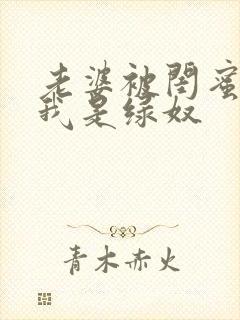 老婆被閨蜜
我是绿奴
青木赤火